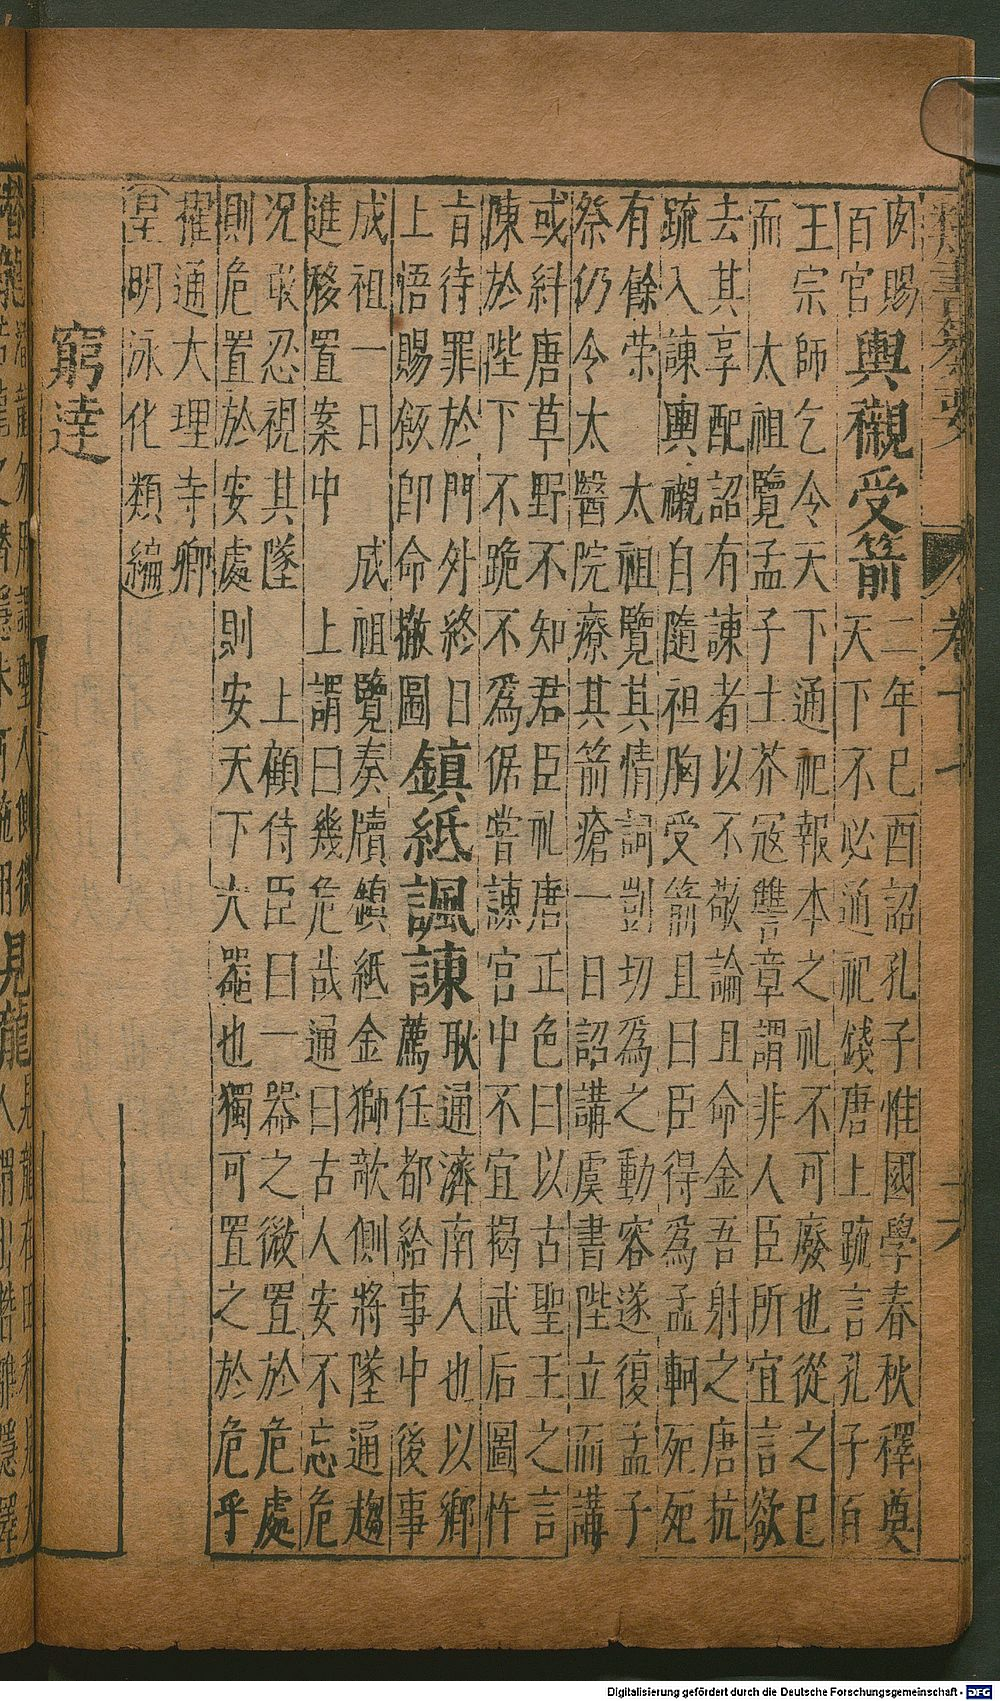 肉賜
百官
輿櫬受箭
二年己酉詔孔子惟國學春秋釋奠
天下不必通祀錢唐上疏言孔子百
王宗師乞令天下通祀報本之礼不可廢也從之已
而　太祖覽孟子土芥寇讐章謂非人臣所宜言欲
去其享配詔有諫者以不敬論且命金吾射之唐抗
疏入諫輿櫬自隨袒胸受箭且曰臣得為孟軻死死
有餘榮　太祖覽其情詞剴切為之動容遂復孟子
祭仍令太醫院療其箭瘡一日詔講虞書陛立而講
或糾唐草野不知君臣礼唐正色曰以古聖王之言
陳於陛下不跪不為倨嘗諫宮中不宜揭武后圖忤
旨待罪於門外終日
上悟賜飯即命撤圖
鎮紙諷諫
耿通濟南人也以鄉
薦任都給事中後事
成祖一日　成祖覽奏牘鎮紙金獅欹側將墜通趨
進移置案中　上謂曰幾危哉通曰古人安不忘危
況敢忍視其墜　上顧侍臣曰一器之微置於危處
則危置於安處則安天下大器也獨可置之於危乎
擢通大理寺卿
(皇明泳化類編)
窮達
Digitalisierung gefördert durch die Deutsche Forschungsgemeinschaft - DFG